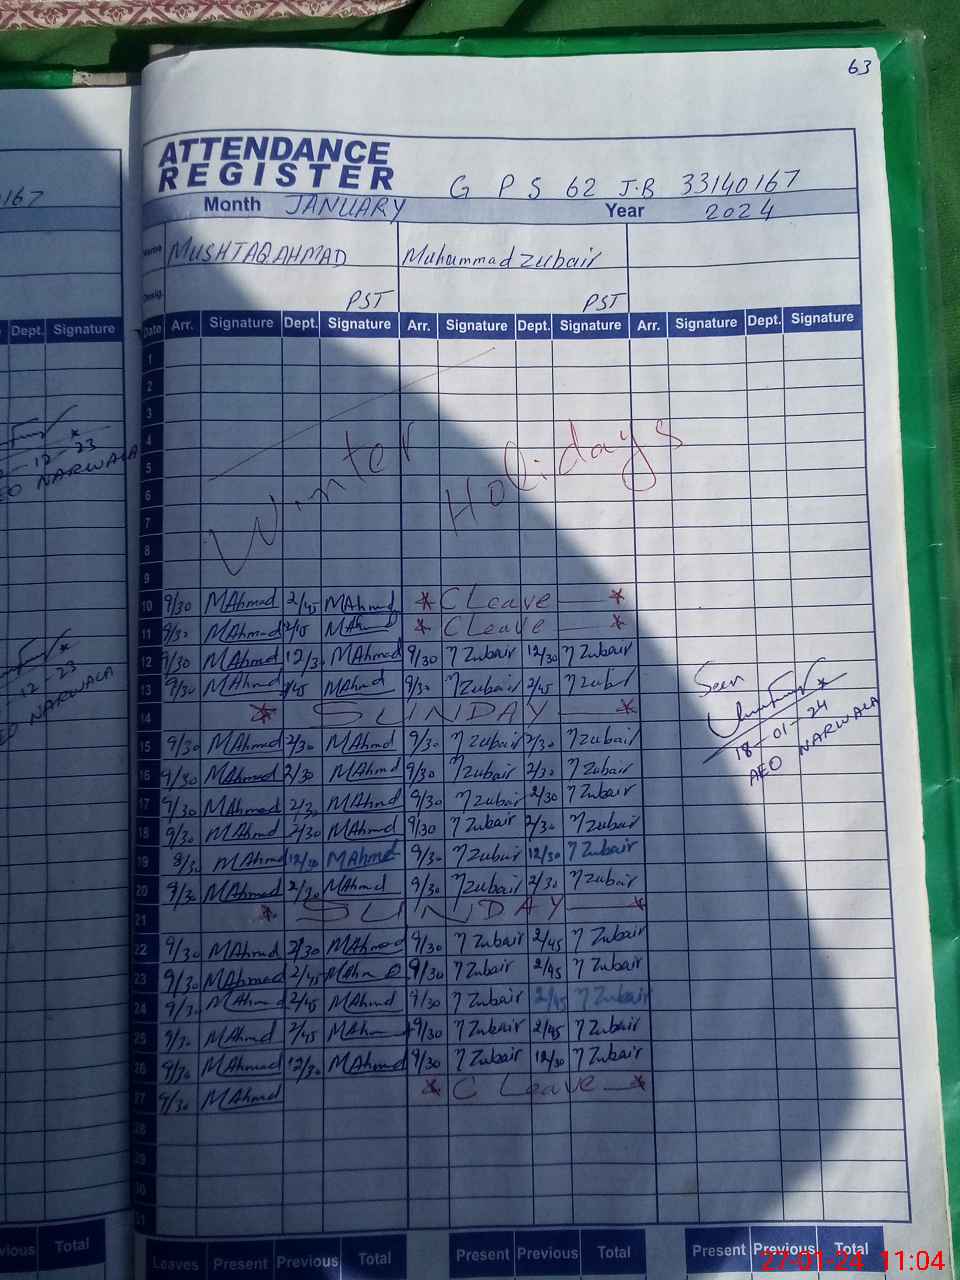 63
ATTENDANCE
REGISTER
G P S 62 J.B 33140167
Month JANUARY Year 2024
Name MUSHTAQ AHMAD Muhammad Zubair
Desig. PST PST
Date Arr. Signature Dept. Signature Arr. Signature Dept. Signature Arr. Signature Dept. Signature
1
2
3
4
5
6
7
8
Winter Holidays
9
10 9/30 MAhmad 2/45 MAhmad * C Leave *
11 9/30 MAhmad 2/45 MAhmad * C Leave *
12 9/30 MAhmad 12/30 MAhmad 9/30 M Zubair 12/30 M Zubair
13 9/30 MAhmad 2/45 MAhmad 9/30 M Zubair 2/45 M Zubair
14 * SUNDAY *
15 9/30 MAhmad 2/30 MAhmad 9/30 M Zubair 2/30 M Zubair
16 9/30 MAhmad 2/30 MAhmad 9/30 M Zubair 2/30 M Zubair
17 9/30 MAhmad 2/30 MAhmad 9/30 M Zubair 2/30 M Zubair
18 9/30 MAhmad 2/30 MAhmad 9/30 M Zubair 2/30 M Zubair
19 9/30 MAhmad 12/30 MAhmad 9/30 M Zubair 12/30 M Zubair
20 9/30 MAhmad 2/30 MAhmad 9/30 M Zubair 2/30 M Zubair
21 * SUNDAY *
22 9/30 MAhmad 2/30 MAhmad 9/30 M Zubair 2/45 M Zubair
23 9/30 MAhmad 2/45 MAhmad 9/30 M Zubair 2/45 M Zubair
24 9/30 MAhmad 2/45 MAhmad 9/30 M Zubair 2/45 M Zubair
25 9/30 MAhmad 2/45 MAhmad 9/30 M Zubair 2/45 M Zubair
26 9/30 MAhmad 12/30 MAhmad 9/30 M Zubair 12/30 M Zubair
27 9/30 MAhmad * C Leave *
28
29
30
31
Seen
18-01-24
AEO NARWALA
Leaves Present Previous Total Present Previous Total Present Previous Total
167
Dept. Signature
12-23
AEO NARWALA
12-23
NARWALA
Previous Total
27-01-24 11:04